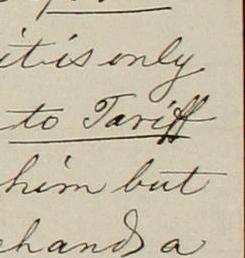 it is only
to Tariff
him but
hands a